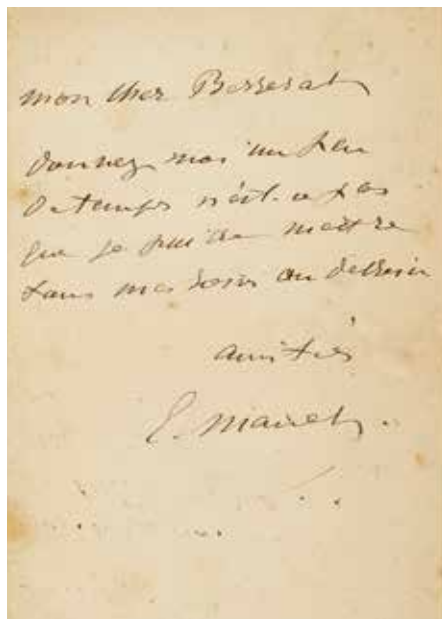 mon cher Bergerat
donnez moi un peu
de temps n'est-ce pas
que je puisse mettre
tous mes soins au dessin
amitiés
E. Manet.